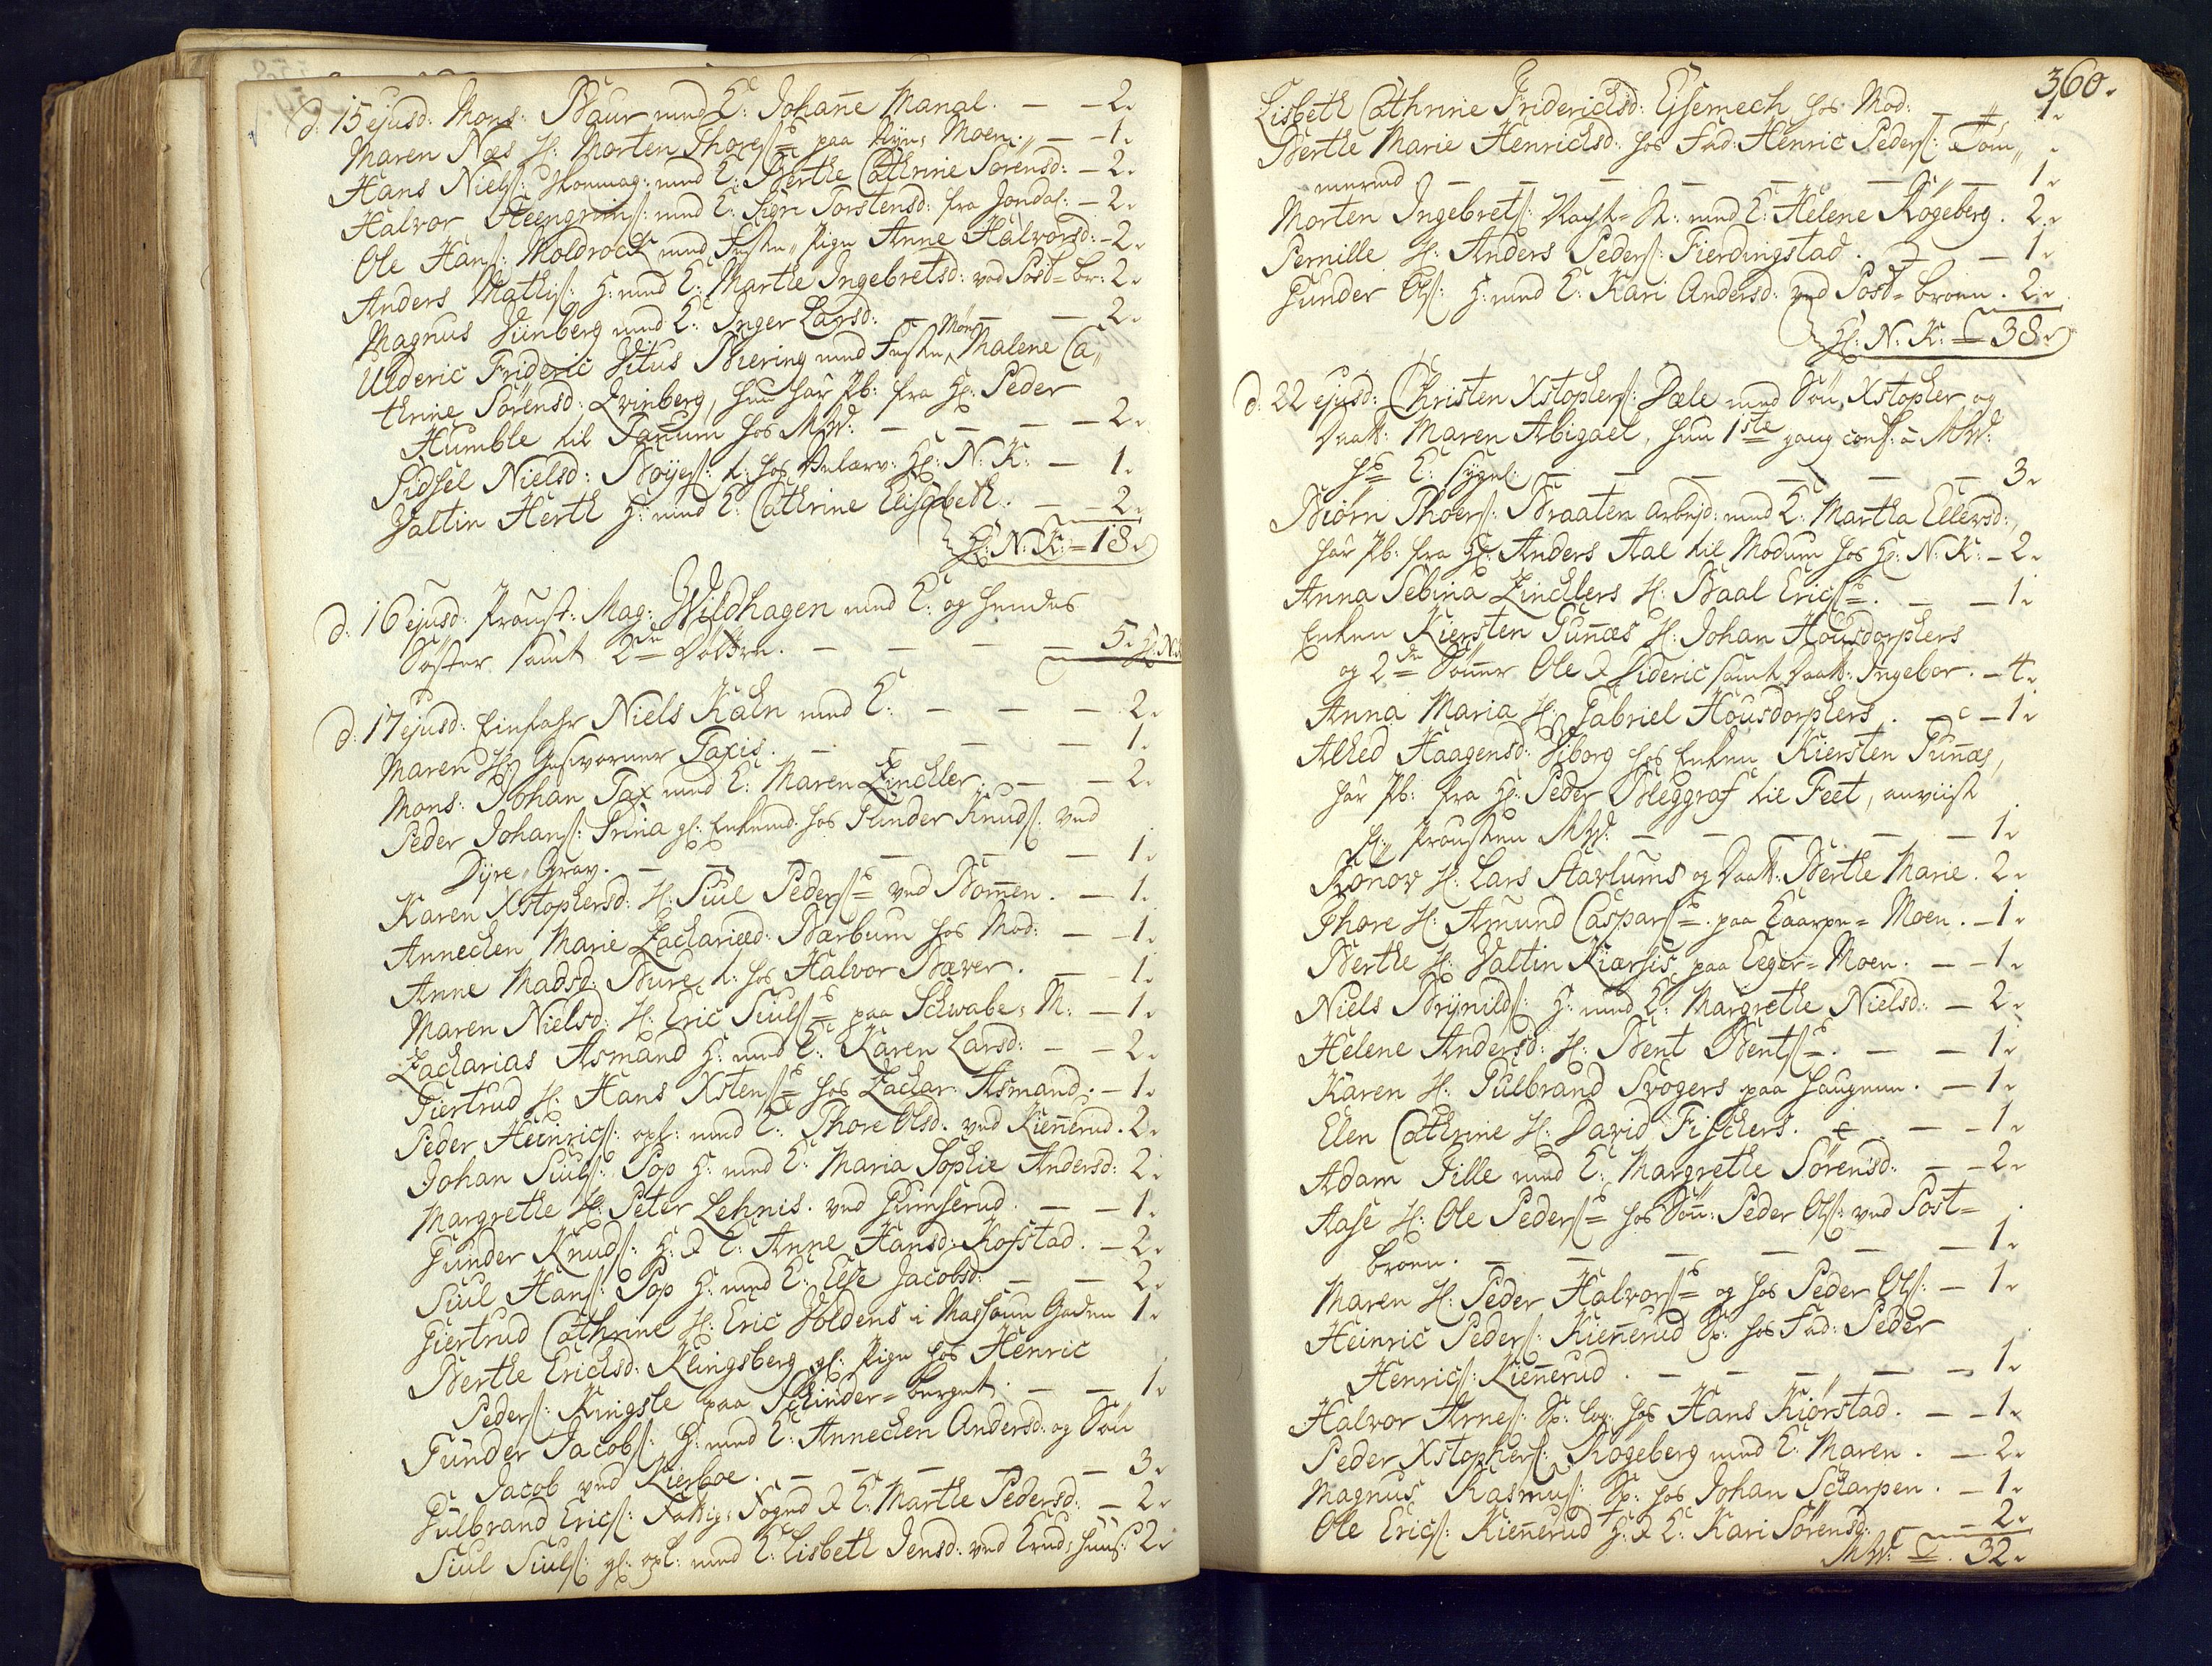 d. 15 ejusd: Mons: Baur med E: Johane Manal. — — 2.
Maren Næs H: Morten Thores: paa Nye, Moen. — — 1.
Hans Niels: Skomag: med E: Berthe Cathrine Sørensd: — 2.
Halvor Steengrims: med E: Sigri Torstensd: fra Jondal: — 2.
Ole Hans: Moldrock med Feste, Pige Anne Halvorsd: — 2.
Anders Mathis: H: med E: Marthe Ingebretsd: ved Post=br: 2.
Magnus Vinberg med E: Inger Larsd: — — — 2.
Ulderic Frideric Vitus Biering med Feste, Møe Malene Ca„
thrine Sørensd: Qvinberg, hun har Pb: fra Hr: Peder
Humble til Tanum hos MW: — — — — 2.
Sidsel Nielsd: Bøyes: t: hos Hr: N: K: — 1.
Valtin Herth H: med E: Cathrine Elisabeth. — — 2.
Hr: N: K: = 18.
d: 16 ejusd: Proust: Mag: Wildhagen med E: og hendes
Søster samt 2de Døttre. — — — — 5. Hr: N:
d: 17 ejusd: Einfahr Niels Kaln med E: — — — 2.
Maren H: Gesworner Taxis. — — — — 1.
Mons: Johan Tax med E: Maren Zinchler. — — 2.
Peder Johans: Trina gl: Enkemd: hos Gunder Knuds: ved
Dyre, Grav. — — — — — 1.
Karen Xstophersd: H: Siul Peders: ved Bomen. — 1.
Annechen Marie Zachariæd: Bærbum hos Mod: — — 1.
Anne Madsd: Bure t: hos Halvor Bæver. — — 1.
Maren Nielsd: H: Eric Siuls: paa Schwabe, M: — 1.
Zacharias Asmand H: med E: Karen Larsd: — — 2.
Giertrud H: Hans Xstens: hos Zachar: Asmand. — 1.
Peder Heinrics: opl: med E: Thore Olsd: ved Kienerud. 2.
Johan Siuls: Pop H: med E: Maria Sophie Andersd: 2.
Margrethe H: Peter Lehnis. ved Grimserud. — — 1.
Gunder Knuds: H: & E: Anne Hansd: Kofstad. — 2.
Siul Hans: Pop H: med E: Else Jacobsd: — — 2.
Giertrud Cathrine H: Eric Voldens i Masoun Gaden 1.
Berthe Erichsd: Klingsberg gl: Pige hos Henric
Peders: Kingste paa Schinder=berget. — — 1.
Gunder Jacobs: H: med E: Annechen Andersd: og Søn
Jacob ved Kierboe. — — — — — 3.
Gulbrand Erics: Fattig, Foged & E: Marthe Pedersd: — 2.
Siul Siuls: gl: opl: med E: Lisbeth Jensd: ved Krud, huus: 2.
360.
Lisbeth Cathrine Friderichsd: Eisemech hos Mod: — — 1.
Berthe Marie Henrichsd: hos Fad: Henric Peders: Tøm„
mermd — — — — — — 1.
Morten Ingebrets: Vagt=K: med E: Helene Kogeberg. 2.
Pernille H: Anders Peders: Fierdingstad. — — 1.
Gunder Ols: H: med E: Kari Andersd: ved Post=broen. 2.
Hr: N: K: = 38.
d: 22 ejusd: Christen Xstophers: Dæle med Søn Xstopher og
Daatt: Maren Abigael, hun 1ste gang conf: à MW:
hs E: sygel: — — — — — 3.
Biørn Thoers: Braaten arbejd: med E: Martha Ellevsd:,
har Pb: fra Hr: Anders Aal til Modum hos Hr: N: K: — 2.
Anna Sebina Zinchlers H: Baal Erics: — — 1.
Enken Kiersten Punæs H: Johan Housdorphers
og 2de Sønner Ole & Sideric samt Daatt: Ingebor. — 4.
Anna Maria H: Gabriel Housdorphers. — — 1.
Alhed Haagensd: Viborg hos Enken Kiersten Punæs,
har Pb: fra Hr: Peder Bleggraf til Feet, anviist
fr: Prousten MW: — — — — — 1.
Ronov H: Lars Stavlums og Daatt: Berthe Marie. 2.
Thore H: Amund Caspars: paa Taarpe=Moen. — 1.
Berthe H: Valtin Kiærsis paa Eeger=Moen. — — 1.
Niels Brynilds: H: med E: Margrethe Nielsd: — 2.
Helene Andersd: H: Bent Bents: — — 1.
Karen H: Gulbrand Svogers paa Haugene. — 1.
Elen Cathrine H: David Fischers. — — 1.
Adam Tille med E: Margrethe Sørensd: — — 2.
Aase H: Ole Peders: hos Søn: Peder Ols: ved Post=
broen. — — — — — 1.
Maren H: Peder Halvors: og hos Peder Ols: — 1.
Heinric Peders: Kienerud Sp: hos Fad: Peder
Henrics: Kienerud. — — — — — 1.
Halvor Arnes: Sp: log: hos Hans Kiørstad. — — 1.
Peder Xstophers: Kogeberg med E: Maren. — 2.
Magnus Rasmus: Sp: hos Johan Scharpen. — 1.
Ole Erics: Kienerud H: & E: Kari Sørensd: — — 2.
MW: = 32.